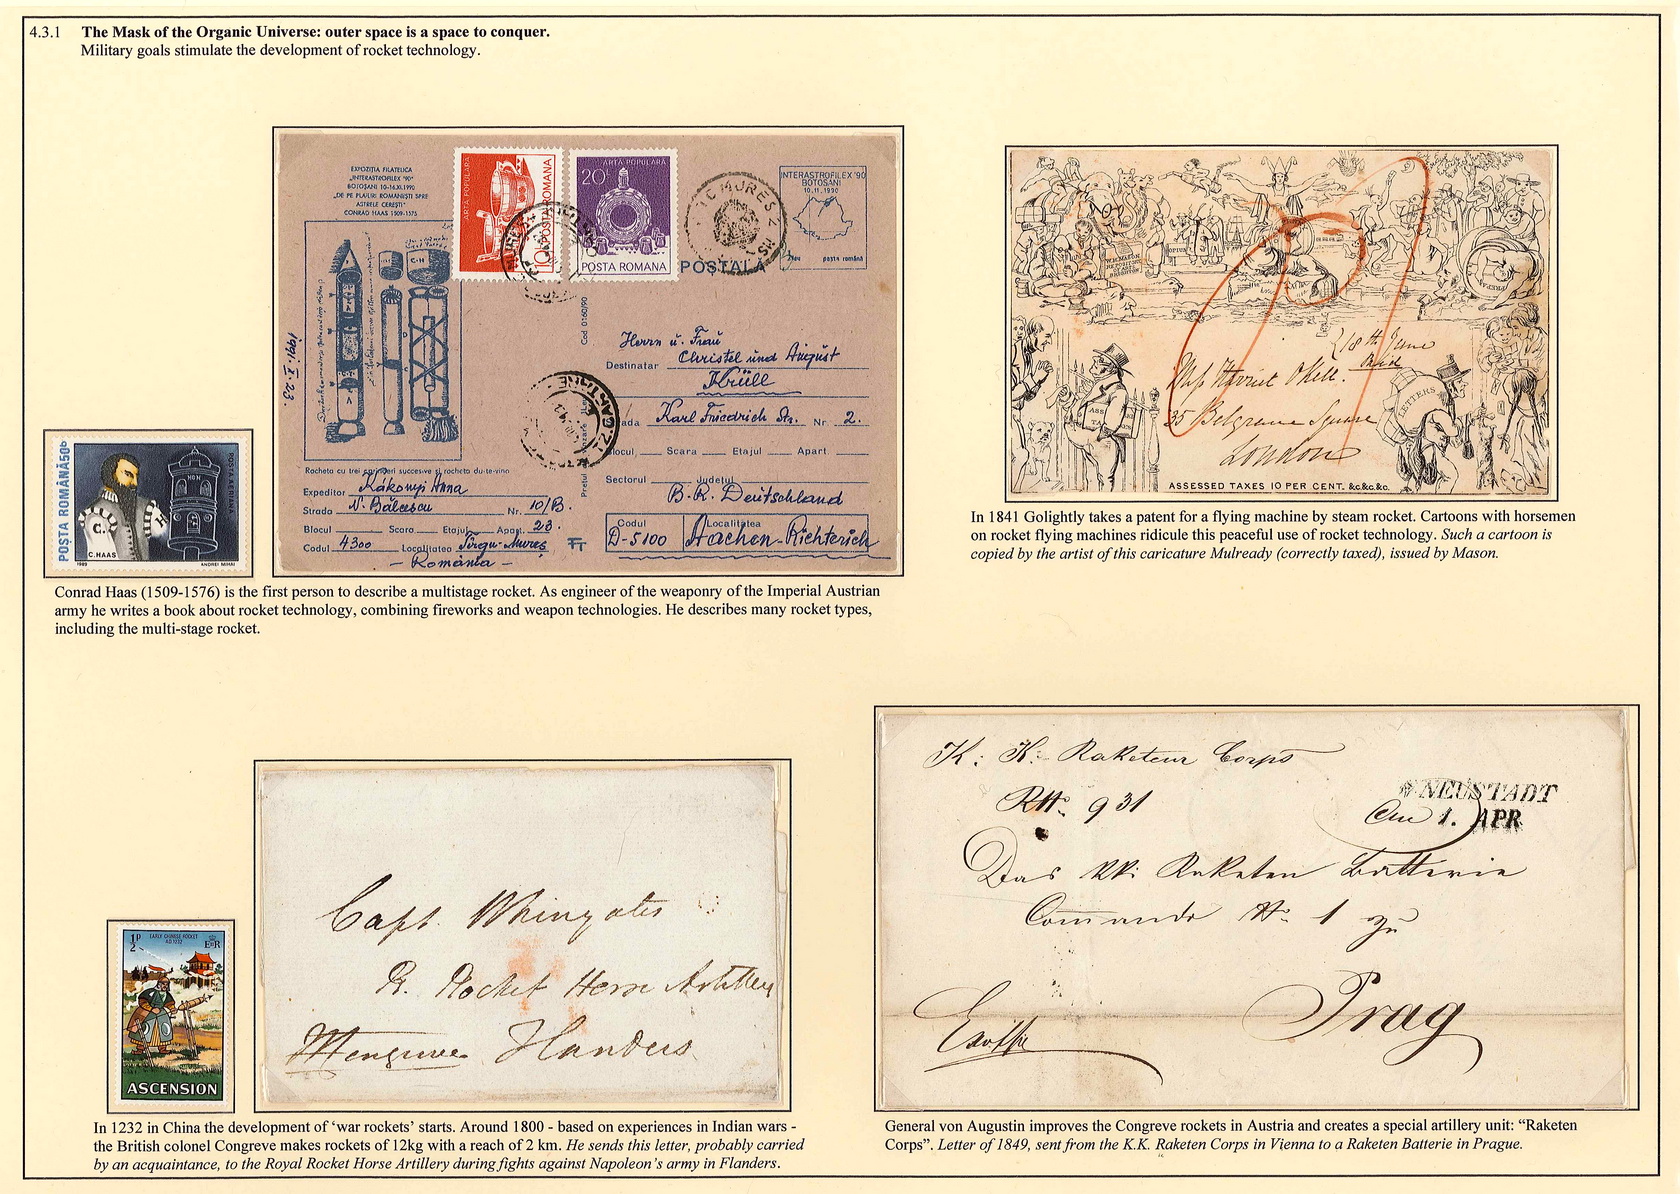 4.3.1 The Mask of the Organic Universe: outer space is a space to conquer.
Military goals stimulate the development of rocket technology.
EXPOZIȚIA FILATELICA
„INTERASTROFILEX '90"
BOTOȘANI 10-16.XI.1990
„DE PE PLAIURI ROMÂNEȘTI SPRE
ASTRELE CEREȘTI"
CONRAD HAAS 1509-1575
ARTA POPULARA
10L POSTA ROMANA
ARTA POPULARA
20L
POSTA ROMANA
POȘTALA
INTERASTROFILEX '90
BOTOȘANI
10.11.1990
posta română
C-H
1991.X.23.
Cod 0160/90
Destinatar Herrn u. Frau
Christel und August
Krüll
Strada Karl Friedrich Str. Nr. 2.
Blocul Scara Etajul Apart
Sectorul Județul
B.R. Deutschland
Codul Localitatea
D-5100 Aachen-Richterich
Rocheta cu trei aprinderi succesive și rocheta du-te-vino
Expeditor Kákonyi Anna
Strada N. Bălcescu Nr. 10/B.
Blocul Scara Etajul Apart. 23.
Codul 4300 Localitatea Tîrgu-Mureș
- România -
POȘTA ROMÂNĂ 50b
POSTA AERIANA
C. H
C.HAAS
1989 ANDREI MIHAI
Conrad Haas (1509-1576) is the first person to describe a multistage rocket. As engineer of the weaponry of the Imperial Austrian
army he writes a book about rocket technology, combining fireworks and weapon technologies. He describes many rocket types,
including the multi-stage rocket.
18th June
Paid
Miss Harriet Okill.
35 Belgrave Square
London
LETTERS
ASSESSED TAXES 10 PER CENT. &c.&c.&c.
In 1841 Golightly takes a patent for a flying machine by steam rocket. Cartoons with horsemen
on rocket flying machines ridicule this peaceful use of rocket technology. Such a cartoon is
copied by the artist of this caricature Mulready (correctly taxed), issued by Mason.
½p
EARLY CHINESE ROCKET
A.D. 1232
E II R
ASCENSION
Capt. Whinyates
R. Rocket Horse Artillery
Flanders
In 1232 in China the development of 'war rockets' starts. Around 1800 - based on experiences in Indian wars -
the British colonel Congreve makes rockets of 12kg with a reach of 2 km. He sends this letter, probably carried
by an acquaintance, to the Royal Rocket Horse Artillery during fights against Napoleon's army in Flanders.
K: K: Raketeur Corps
No. 931
W. NEUSTADT
1. APR
Das kk: Raketen Batterie
Commando No. 1 zu
Prag
General von Augustin improves the Congreve rockets in Austria and creates a special artillery unit: "Raketen
Corps". Letter of 1849, sent from the K.K. Raketen Corps in Vienna to a Raketen Batterie in Prague.